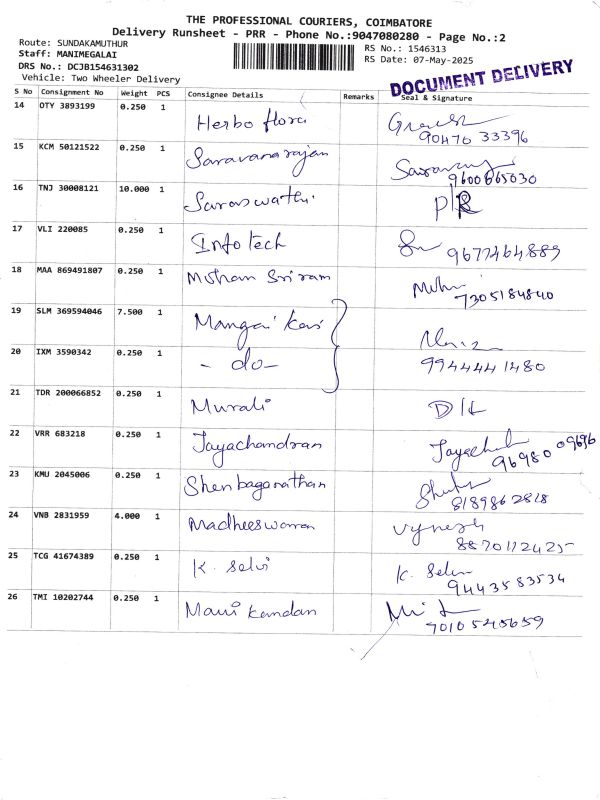 THE PROFESSIONAL COURIERS, COIMBATORE
Delivery Runsheet - PRR - Phone No.:9047080280 - Page No.:2
Route: SUNDAKAMUTHUR
Staff: MANIMEGALAI
DRS No.: DCJB154631302
Vehicle: Two Wheeler Delivery
RS No.: 1546313
RS Date: 07-May-2025
DOCUMENT DELIVERY
S No Consignment No Weight PCS Consignee Details Remarks Seal & Signature
14 OTY 3893199 0.250 1 Herbo flora
90470 33396
15 KCM 50121522 0.250 1 Saravanarajan
9600665030
16 TNJ 30008121 10.000 1 Saraswathi
17 VLI 220085 0.250 1 Infotech 9677464889
18 MAA 869491807 0.250 1 Mohan Sriram
7305184840
19 SLM 369594046 7.500 1 Mangai Kavi
20 IXM 3590342 0.250 1 - do - 9944441480
21 TDR 200066852 0.250 1 Murali
22 VRR 683218 0.250 1 Jayachandran
96980 09696
23 KMU 2045006 0.250 1 Shenbaganathan
8189862818
24 VNB 2831959 4.000 1 Madheeswaran
8870112425
25 TCG 41674389 0.250 1 K. Selvi K. Selvi
9443583534
26 TMI 10202744 0.250 1 Manikandan
7010545659